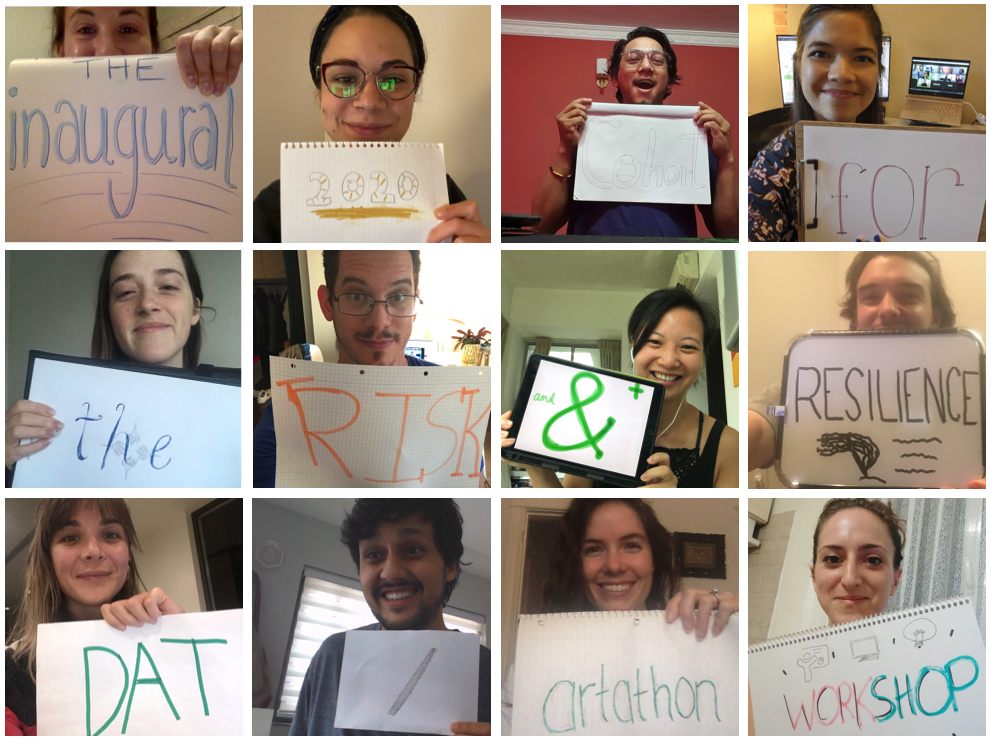 THE
inaugural
2020
Cohort
FOR
the
RISK
and & +
RESILIENCE
DAT
/
artathon
WORKSHOP